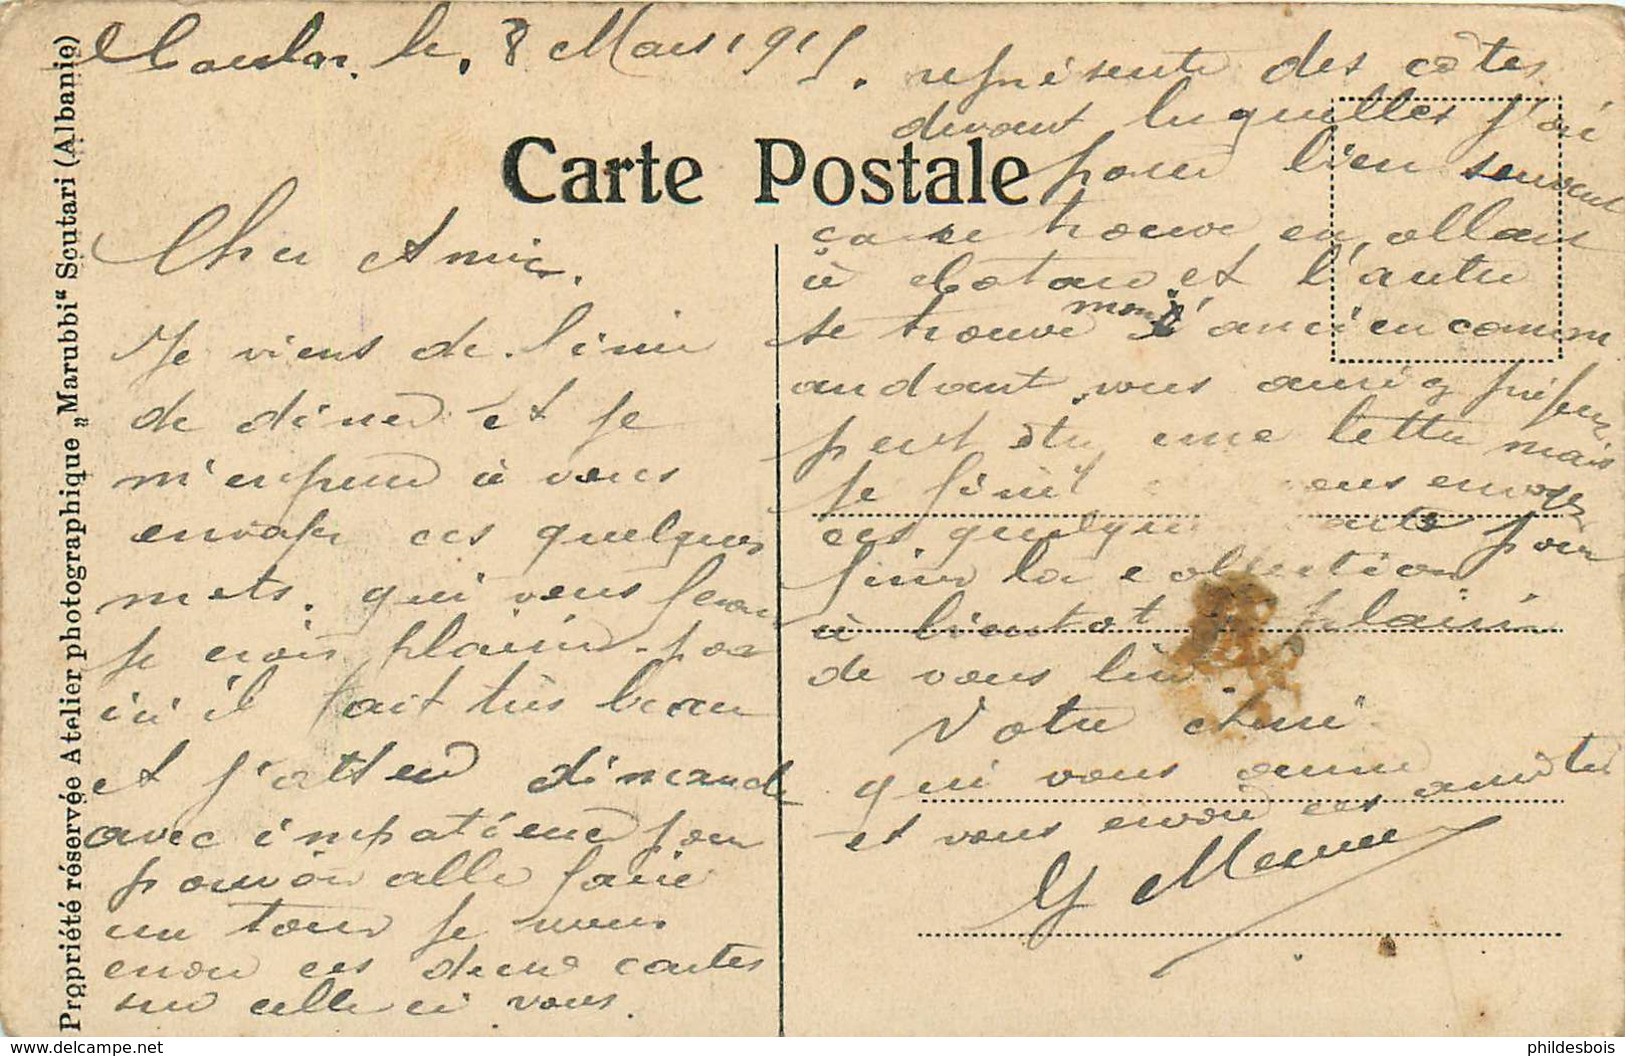 le 8 Mars 1915.
Carte Postale
Cher Amie.
Je viens de finir
de diner et je
m'enpresse à vous
envoyer ces quelques
mots. qui vous feront
je crois plaisir. pour
ici il fait très beau
et j'atten dimanche
avec impatience pour
pouvoir alle faire
un tour je vous
envoi ces deux cartes
sur celle ci vous
représente des côtes
devant lesquelles j'ai
passé bien souvent
ça se trouve en allant
à Cotaro et l'autre
se trouve mon l'ancien comm
andant, vous auriez préféré
peut être une lettre mais
je fini vous envoyer
ces quelques cartes pour
finir la collection
à bientot plaisir
de vous lire
Votre Ami
qui vous aime
et vous envoi ces amitié
Propriété réservée Atelier photographique „Marubbi“ Scutari (Albanie)
www.delcampe.net
phildesbois